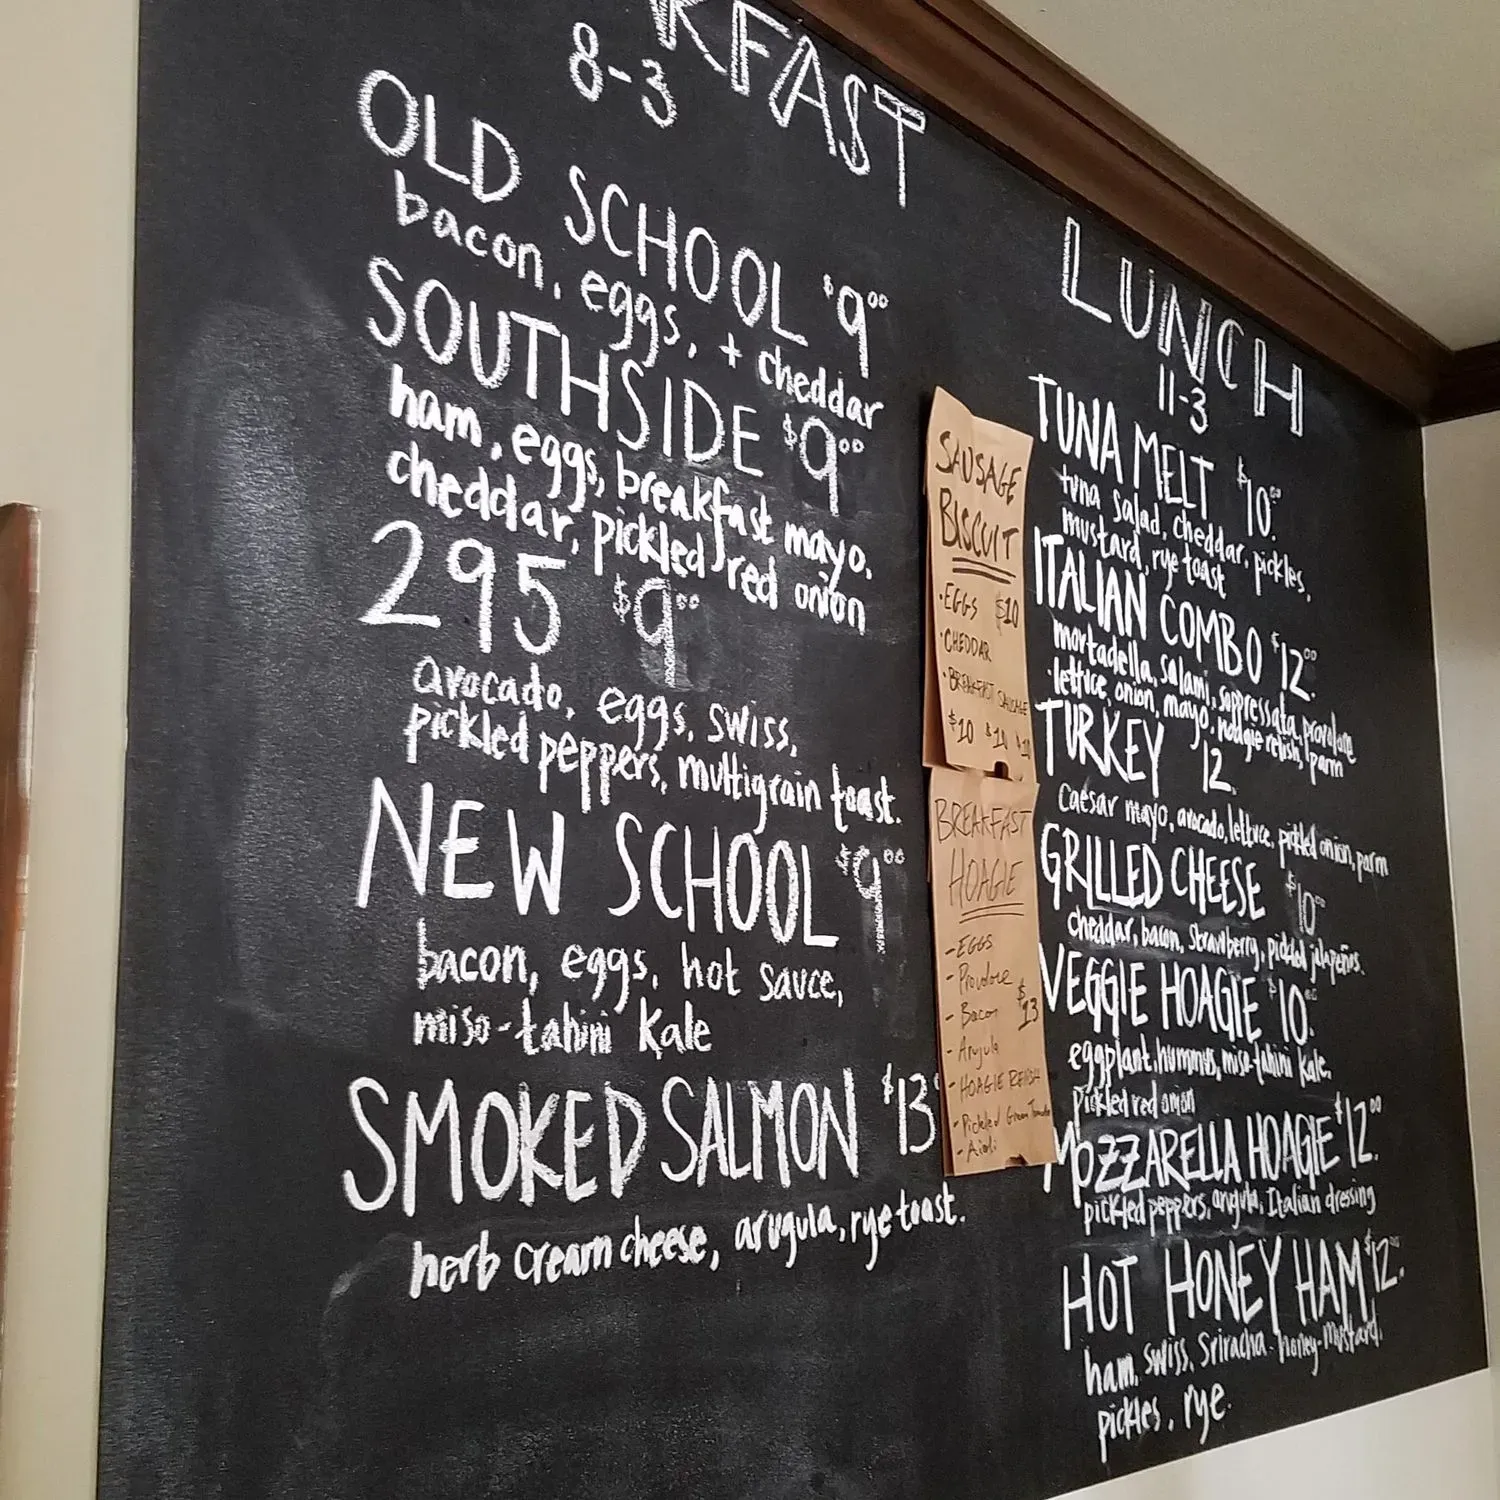 KFAST
8-3
OLD SCHOOL $9.00
bacon, eggs, + cheddar
SOUTHSIDE $9.00
ham, eggs, breakfast mayo,
cheddar, pickled red onion
295 $9.00
avocado, eggs, swiss,
pickled peppers, multigrain toast.
NEW SCHOOL $9.00
bacon, eggs, hot sauce,
miso-tahini kale
SMOKED SALMON $13
herb cream cheese, arugula, rye toast.
SAUSAGE
BISCUIT
·EGGS $10
·CHEDDAR
·BREAKFAST SAUSAGE
$10 $10 $10
BREAKFAST
HOAGIE
-EGGS
-Provolone
-Bacon $13
-Arugula
-HOAGIE RELISH
-Pickled Green Tomato
-Aioli
LUNCH
11-3
TUNA MELT $10.00
tuna salad, cheddar, pickles,
mustard, rye toast
ITALIAN COMBO $12.00
mortadella, salami, soppressata, provolone
lettuce, onion, mayo, hoagie relish, parm
TURKEY 12.
caesar mayo, avocado, lettuce, pickled onion, parm
GRILLED CHEESE $10
cheddar, bacon, strawberry, pickled jalapeños.
VEGGIE HOAGIE $10.
eggplant, hummus, miso-tahini kale,
pickled red onion
MOZZARELLA HOAGIE $12.00
pickled peppers, arugula, Italian dressing
HOT HONEY HAM $12.00
ham, swiss, sriracha-honey-mustard,
pickles, rye.